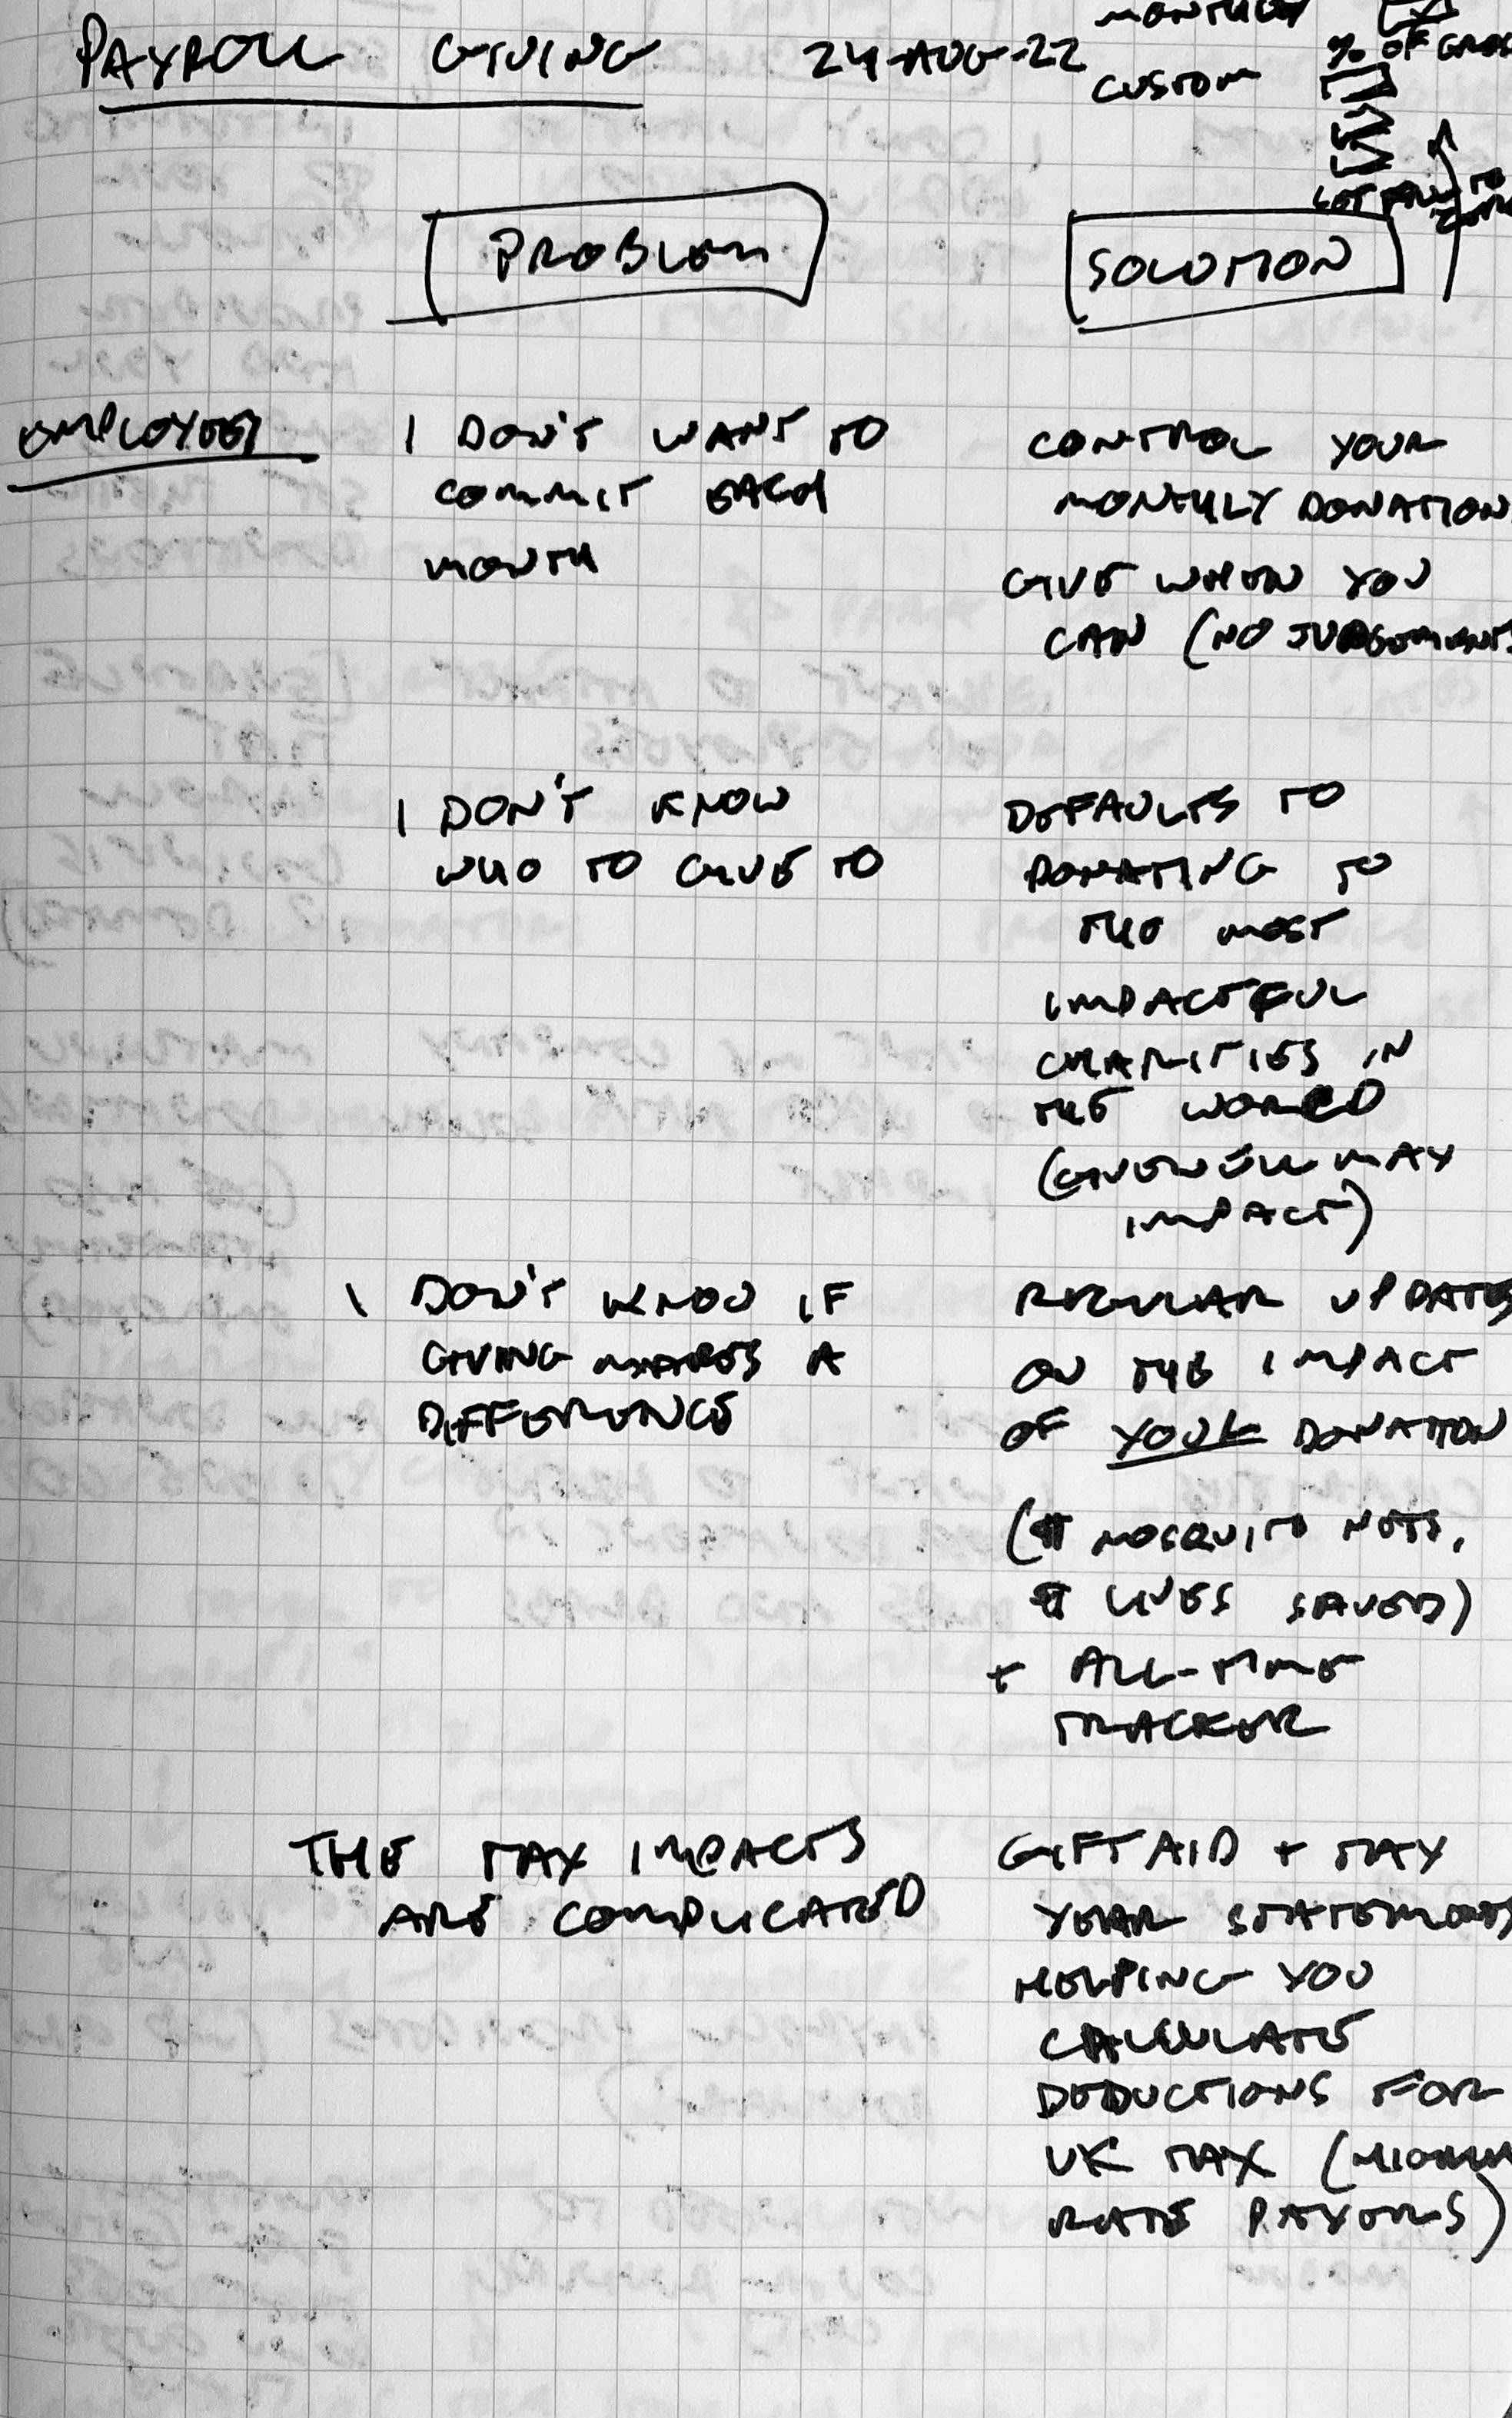 MONTHLY
PAYROLL GIVING 24-AUG-22
% OF GROSS
CUSTOM
PROBLEM
SOLUTION
EMPLOYEES
I DON'T WANT TO
COMMIT EACH
MONTH
CONTROL YOUR
MONTHLY DONATION
GIVE WHEN YOU
CAN (NO JUDGEMENT
I DON'T KNOW
WHO TO GIVE TO
DEFAULTS TO
DONATING TO
THE MOST
IMPACTFUL
CHARITIES IN
THE WORLD
(GIVEWELL MAX
IMPACT)
I DON'T KNOW IF
GIVING MAKES A
DIFFERENCE
REGULAR UPDATES
ON THE IMPACT
OF YOUR DONATION
(# MOSQUITO NETS,
# LIVES SAVED)
+ ALL-TIME
TRACKER
THE TAX IMPACTS
ARE COMPLICATED
GIFT AID + TAX
YEAR STATEMENTS
HELPING YOU
CALCULATE
DEDUCTIONS FOR
UK TAX (HIGHER
RATE PAYERS)